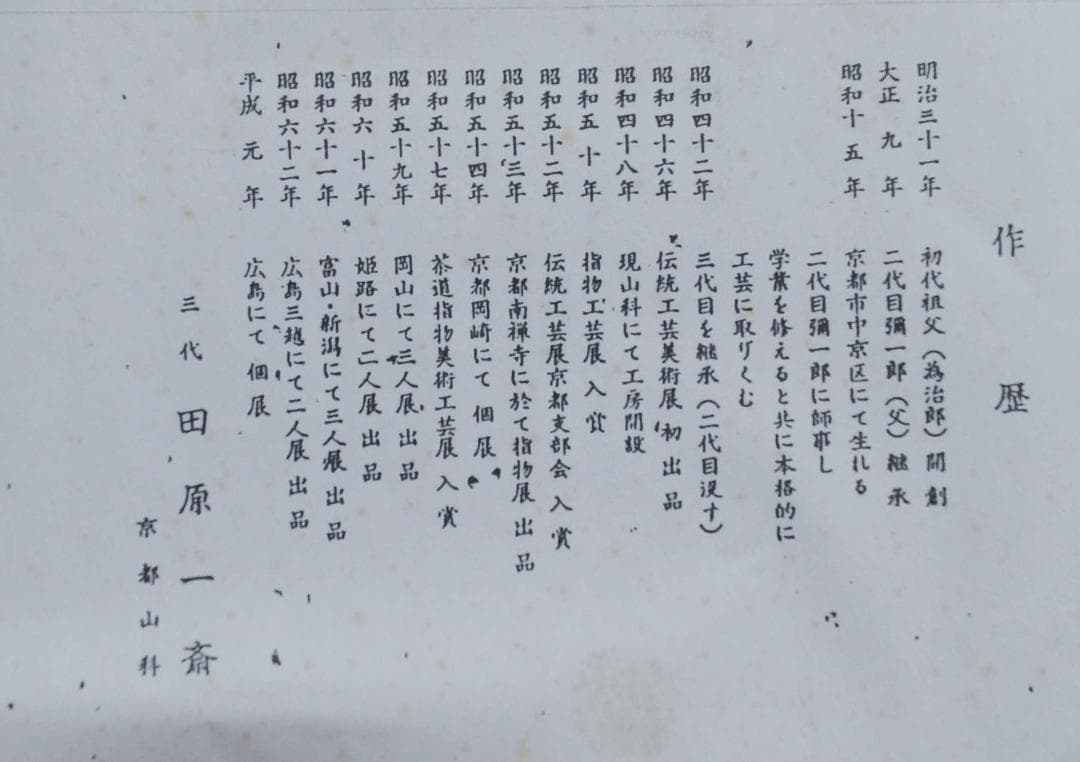 作歴
明治三十一年 初代祖父(為治郎)開創
大正九年 二代目彌一郎(父)継承
昭和十五年 京都市中京区にて生れる
二代目彌一郎に師事し
学業を修えると共に本格的に
工芸に取りくむ
昭和四十二年 三代目を継承(二代目没す)
昭和四十六年 伝統工芸美術展初出品
昭和四十八年 現山科にて工房開設
昭和五十年 指物工芸展入賞
昭和五十二年 伝統工芸展京都支部会入賞
昭和五十三年 京都南禅寺に於て指物展出品
昭和五十四年 京都岡崎にて個展
昭和五十七年 茶道指物美術工芸展入賞
昭和五十九年 岡山にて三人展出品
昭和六十年 姫路にて二人展出品
昭和六十一年 富山・新潟にて三人展出品
昭和六十二年 広島三越にて二人展出品
平成元年 広島にて個展
三代 田原一斎
京都山科